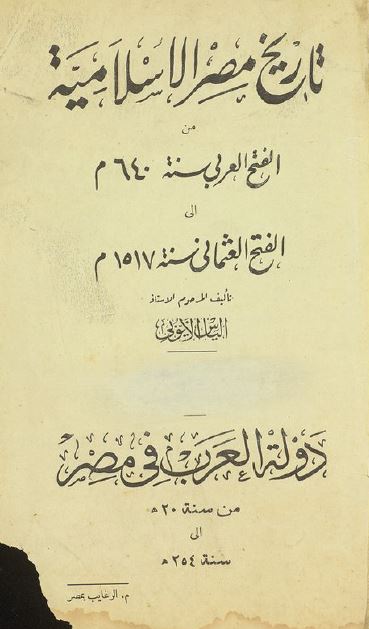 تاريخ مصر الإسلامية
من
الفتح العربي سنة ٦٤٠ م
الى
الفتح العثماني سنة ١٥١٧ م
تأليف المرحوم الاستاذ
الياس الأيوبي
دولة العرب في مصر
من سنة ٢٠ هـ
الى
سنة ٢٥٤ هـ
م. الرغايب بمصر